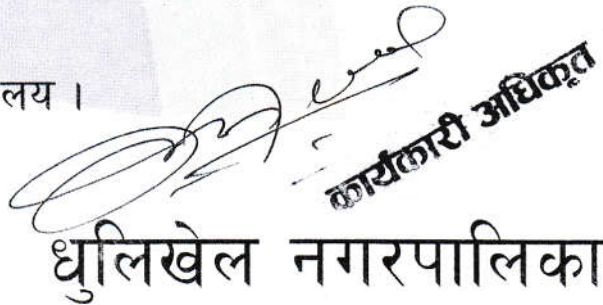 लय ।
कार्यकारी अधिकृत
धुलिखेल नगरपालिका